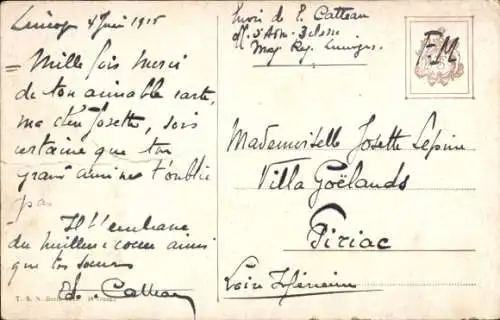 Limoges 4 Juin 1915
= Mille fois merci
de ton aimable carte,
ma chère Josette, sois
certaine que ton
grand ami ne t'oublie
pas
Il t'embrasse
du meilleur coeur ainsi
que tes soeurs
Ed. Catteau
Envoi de E. Catteau
Off. d'Adm. 3e classe
Mag. Rég. Limoges.
F.M
Mademoiselle Josette Lepine
Villa Goëlands
Piriac
Loire Inférieure
T. S. N.